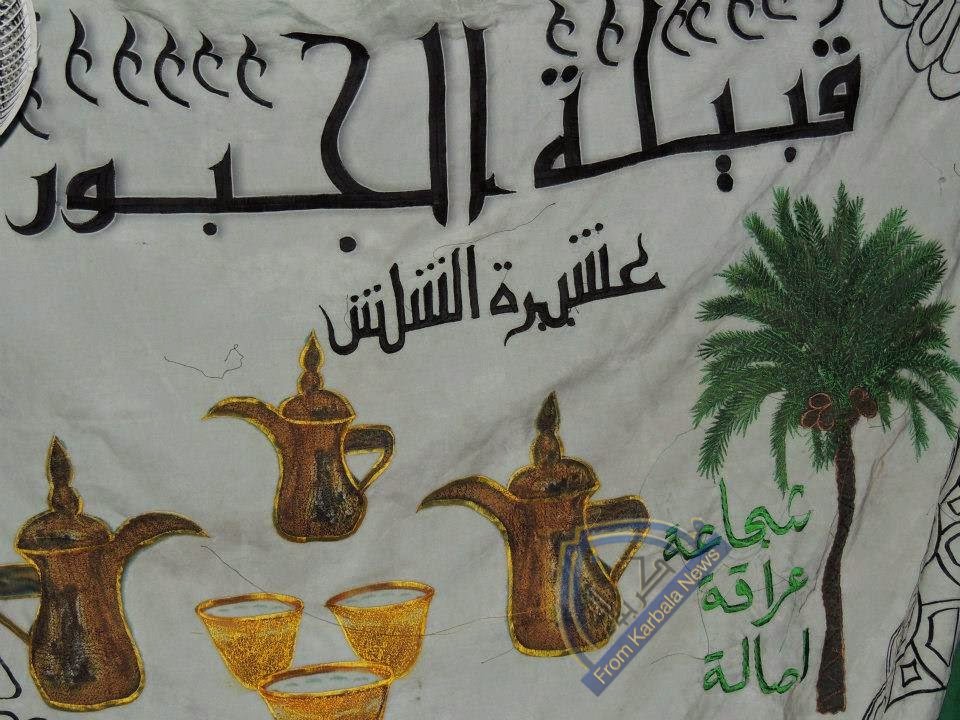 قبيلة الجبور
عشيرة الشلش
شجاعة
عراقة
اصالة
From Karbala News